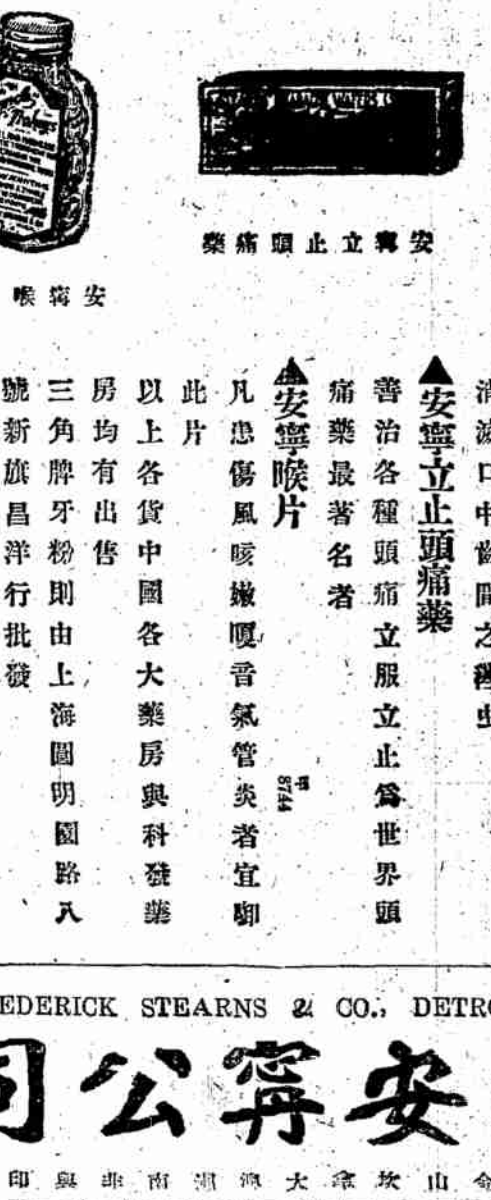 安寗立止頭痛藥
安寗喉
消滅口中齒間之
▲安寧立止頭痛藥
善治各種頭痛立服立止爲世界頭
痛藥最著名者
▲安寧喉片
凡患傷風咳嫩嗄音氣管炎者宜啣
此片
以上各貨中國各大藥房與科發藥
房均有出售
三角牌牙粉則由上海圓明園路八
號新旗昌洋行批發
甲 8744
EDERICK STEARNS & CO., DETRO
安寗公司
金山坎拿大澳洲南非與印